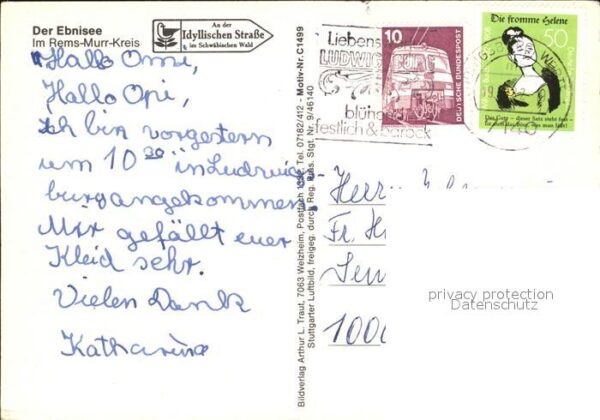 Der Ebnisee
Im Rems-Murr-Kreis
An der
Idyllischen Straße
im Schwäbischen Wald
Hallo Omi,
Hallo Opi,
Ich bin vorgestern
um 10 20 in Ludwigs
burg angekommen.
Mir gefällt euer
Kleid sehr.
Vielen Dank
Katharina
Bildverlag Arthur L. Traut, 7063 Welzheim, Postfach 1324, Tel. 07182/412 - Motiv-Nr. C1499
Stuttgarter Luftbild, freigeg. durch Reg. Präs. Stgt. Nr. 9/46140
Liebens
LUDWIG
blüh
festlich & barock
10
DEUTSCHE BUNDESPOST
Die fromme Helene
50
Das Gute — dieser Satz steht fest —
ist stets das Böse, was man läßt!
Herr
Fr. H
Sen
1000
privacy protection
Datenschutz